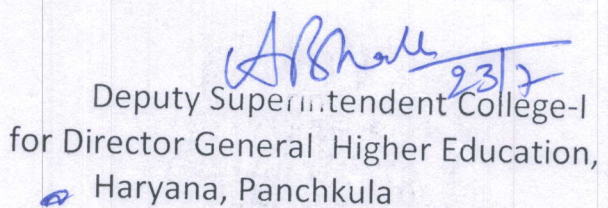 23/7
Deputy Superintendent College-I
for Director General Higher Education,
Haryana, Panchkula